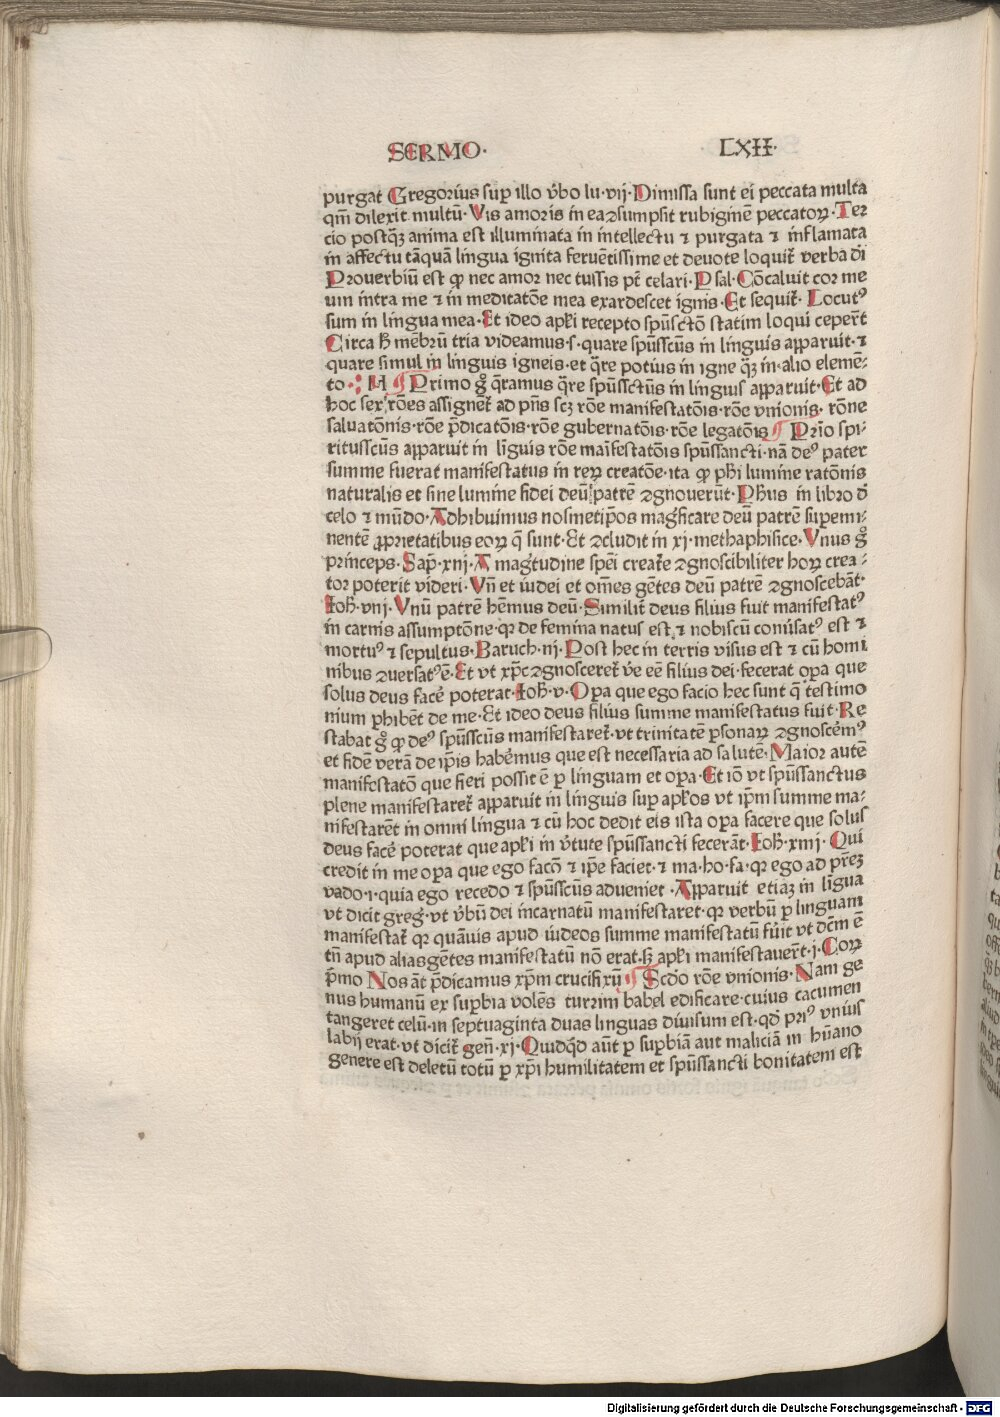 SERMO· LXII·
purgat Gregorius sup illo v̄bo lu·vij·Dimissa sunt ei peccata multa
qm̄ dilexit multū·Vis amoris in ea ꝯsumpsit rubiginē peccatoꝝ·Ter
cio postqꝫ anima est illuminata in intellectu ⁊ purgata ⁊ inflamata
in affectu tāquā lingua ignita feruētissime et deuote loquit᷑ verba dī
Prouerbiū est ꝙ nec amor nec tussis pt̄ celari·Psal·Cōcaluit cor me
um intra me ⁊ in meditatōe mea exardescet ignis·Et sequit᷑·Locutꝰ
sum in lingua mea·Et ideo apłi recepto spūsctō statim loqui ceper̄t
Circa h̄ mēbrū tria videamus·s·quare spūsscūs in linguis apparuit·⁊
quare simul in linguis igneis·et q̄re potius in igne qꝫ in alio elemē-
to·: H ¶ Primo gͦ q̄ramus q̄re spūssctūs in linguis apparuit·Et ad
hoc sex rōes assignet᷑ ad p̄ns scꝫ rōe manifestatōis·rōe vnionis· rōne
saluatōnis·rōe p̄dicatōis·rōe gubernatōis·rōe legatōis ¶ Prīo spi-
ritusscūs apparuit in līguis rōe maīfestatōis spūssancti·nā deꝰ pater
summe fuerat manifestatus in reꝝ creatōe·ita ꝙ ph̄i lumine ratōnis
naturalis et sine lumine fidei deū patrē ꝯgnouerūt·Ph̄us in libro d̄
celo ⁊ mūdo·Adhibuimus nosmetip̄os mag̓ficare deū patrē supemi-
nentē ꝓprietatibus eoꝝ q̄ sunt·Et ꝯcludit in xj·methaphisice·Vnus gͦ
princeps·Sap̄·xnj·A mag̓tudine spēi creat᷑e ꝯgnoscibiliter hoꝝ crea-
tor poterit videri·Vn̄ et iudei et om̄es gētes deū patrē ꝯgnoscebāt·
Joh̄·vnj·Vnū patrē hēmus deū·Similit̄ deus filius fuit manifestatꝰ
in carnis assumptōne·qꝛ de femina natus est·⁊ nobiscū conūsatꝰ est ⁊
mortuꝰ ⁊ sepultus·Baruch·nj·Post hec in terris visus est ⁊ cū homi
nibus ꝯuersatꝰ ē·Et vt xp̄c ꝯgnosceret᷑ v̄e eē filius dei·fecerat opa que
solus deus facē poterat·Joh̄·v·Opa que ego facio hec sunt q̄ testimo
nium phibēt de me·Et ideo deus filius summe manifestatus fuit·Re
stabat gͦ ꝙ deꝰ spūsscūs manifestaret᷑·vt trinitatē psonaꝝ ꝯgnoscēmꝰ
et fidē verā de ip̄is habēmus que est necessaria ad salutē·Maior autē
manifestatō que fieri possit ē p linguam et opa·Et iō vt spūssanctus
plene manifestaret᷑ apparuit in linguis sup apłos vt ip̄m summe ma-
nifestarēt in omni lingua ⁊ cū hoc dedit eis ista opa facere que solus
deus facē poterat que apłi in v̄tute spūssancti fecerāt·Joh̄·xmj·Qui
credit in me opa que ego facō ⁊ ip̄e faciet·⁊ ma·ho·fa·qꝛ ego ad prēꝫ
vado·i·quia ego recedo ⁊ spūsscūs adueniet ·Apparuit etiaꝫ in līgua
vt dicit greg̓·vt v̄bū dei incarnatū manifestaret·qꝛ verbū p linguam
manifestat᷑ qꝛ quāuis apud iudeos summe manifestatū fuit vt dc̄m ē
tn̄ apud alias gētes manifestatū nō erat·sꝫ apłi manifestauer̄t·j·Coꝝ
p̄mo Nos āt p̄dicamus xp̄m crucifixū ¶ Scd̄o rōe vnionis·Nam ge
nus humanū ex supbia volēs turrim babel edificare·cuius cacumen
tangeret celū·in septuaginta duas linguas diuisum est·qd̄ priꝰ vnius
labij erat·vt dicit᷑ gen̄·xj·Quidq̓d aūt p supbiā aut maliciā in hūano
genere est deletū totū p xp̄i humilitatem et spūssancti bonitatem est
Digitalisierung gefördert durch die Deutsche Forschungsgemeinschaft - DFG